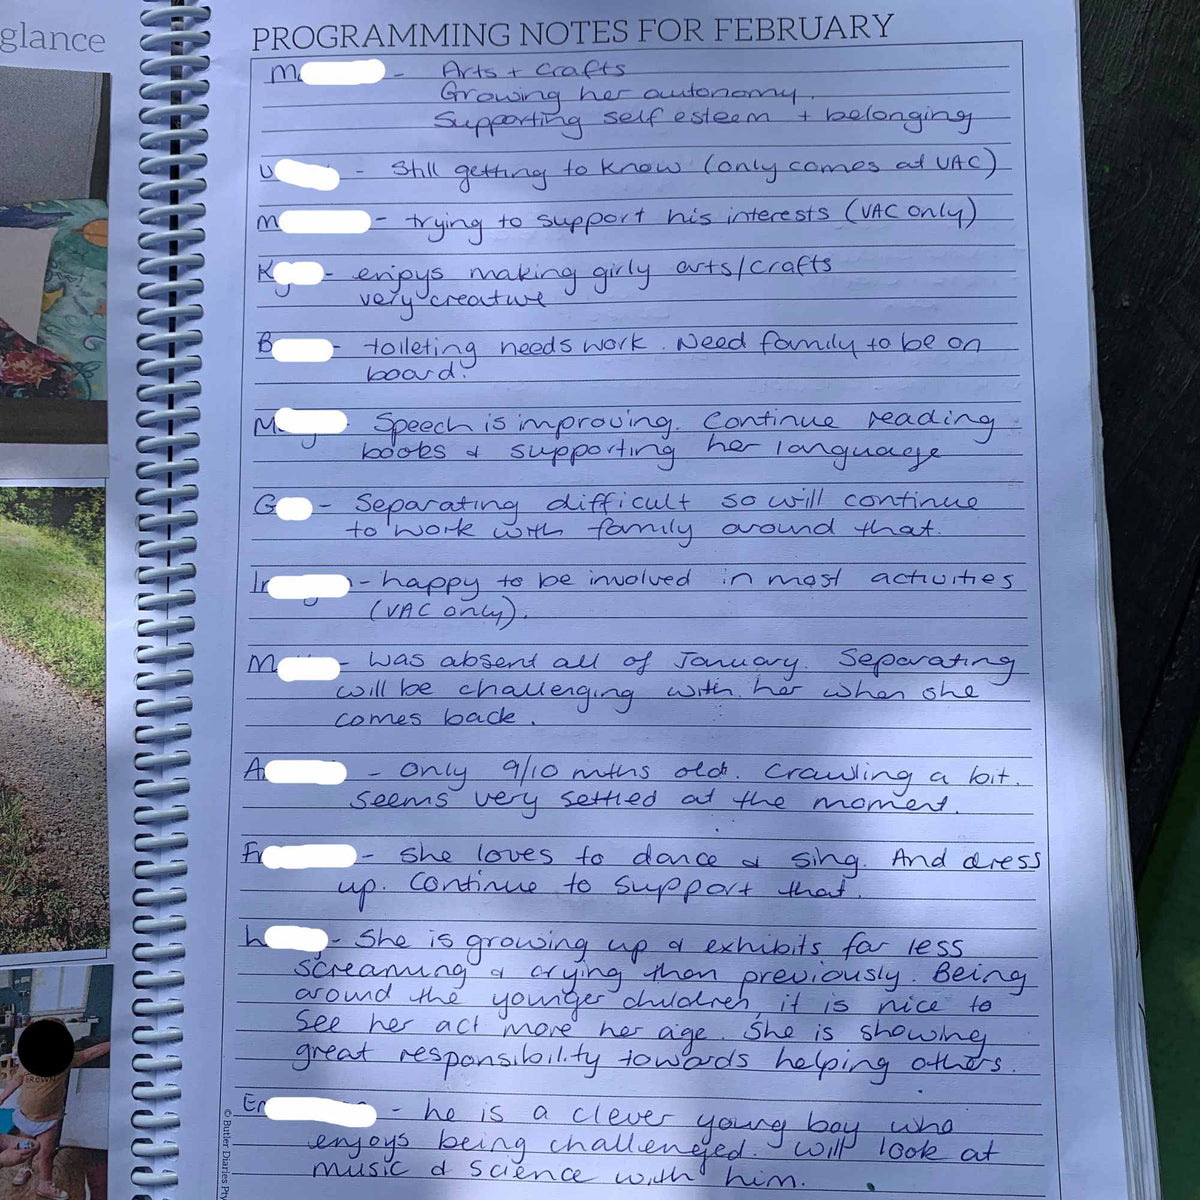 glance
PROGRAMMING NOTES FOR FEBRUARY
M - Arts + crafts
Growing her autonomy.
Supporting self esteem + belonging
U - Still getting to know (only comes at VAC)
M - trying to support his interests (VAC only)
K - enjoys making girly arts/crafts
very creative
B - toileting needs work. Need family to be on
board.
M Speech is improving. Continue reading
books & supporting her language
G - Separating difficult so will continue
to work with family around that.
Im - happy to be involved in most activities
(VAC only).
M - was absent all of January. Separating
will be challenging with her when she
comes back.
A - only 9/10 mths old. Crawling a bit.
Seems very settled at the moment.
F - she loves to dance & sing. And dress
up. Continue to support that.
L - She is growing up & exhibits far less
screaming & crying than previously. Being
around the younger children, it is nice to
see her act more her age. She is showing
great responsibility towards helping others.
Er - he is a clever young boy who
enjoys being challenged. Will look at
music & science with him.
© Butler Diaries Pty